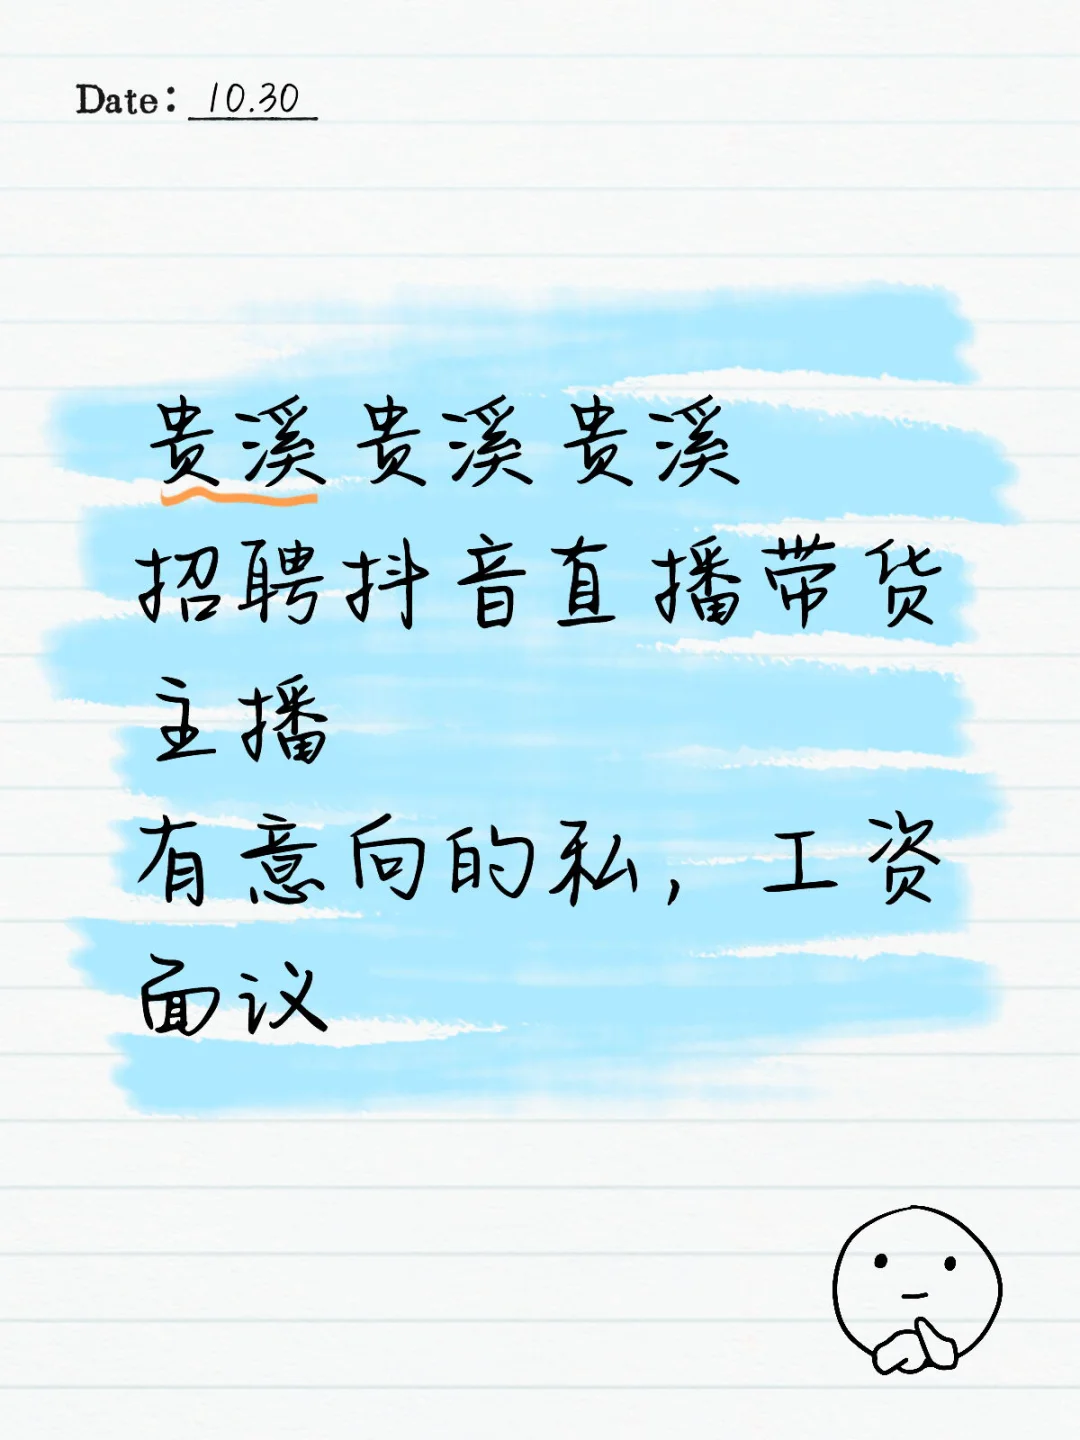 Date: 10.30
贵溪贵溪贵溪
招聘抖音直播带货
主播
有意向的私，工资
面议